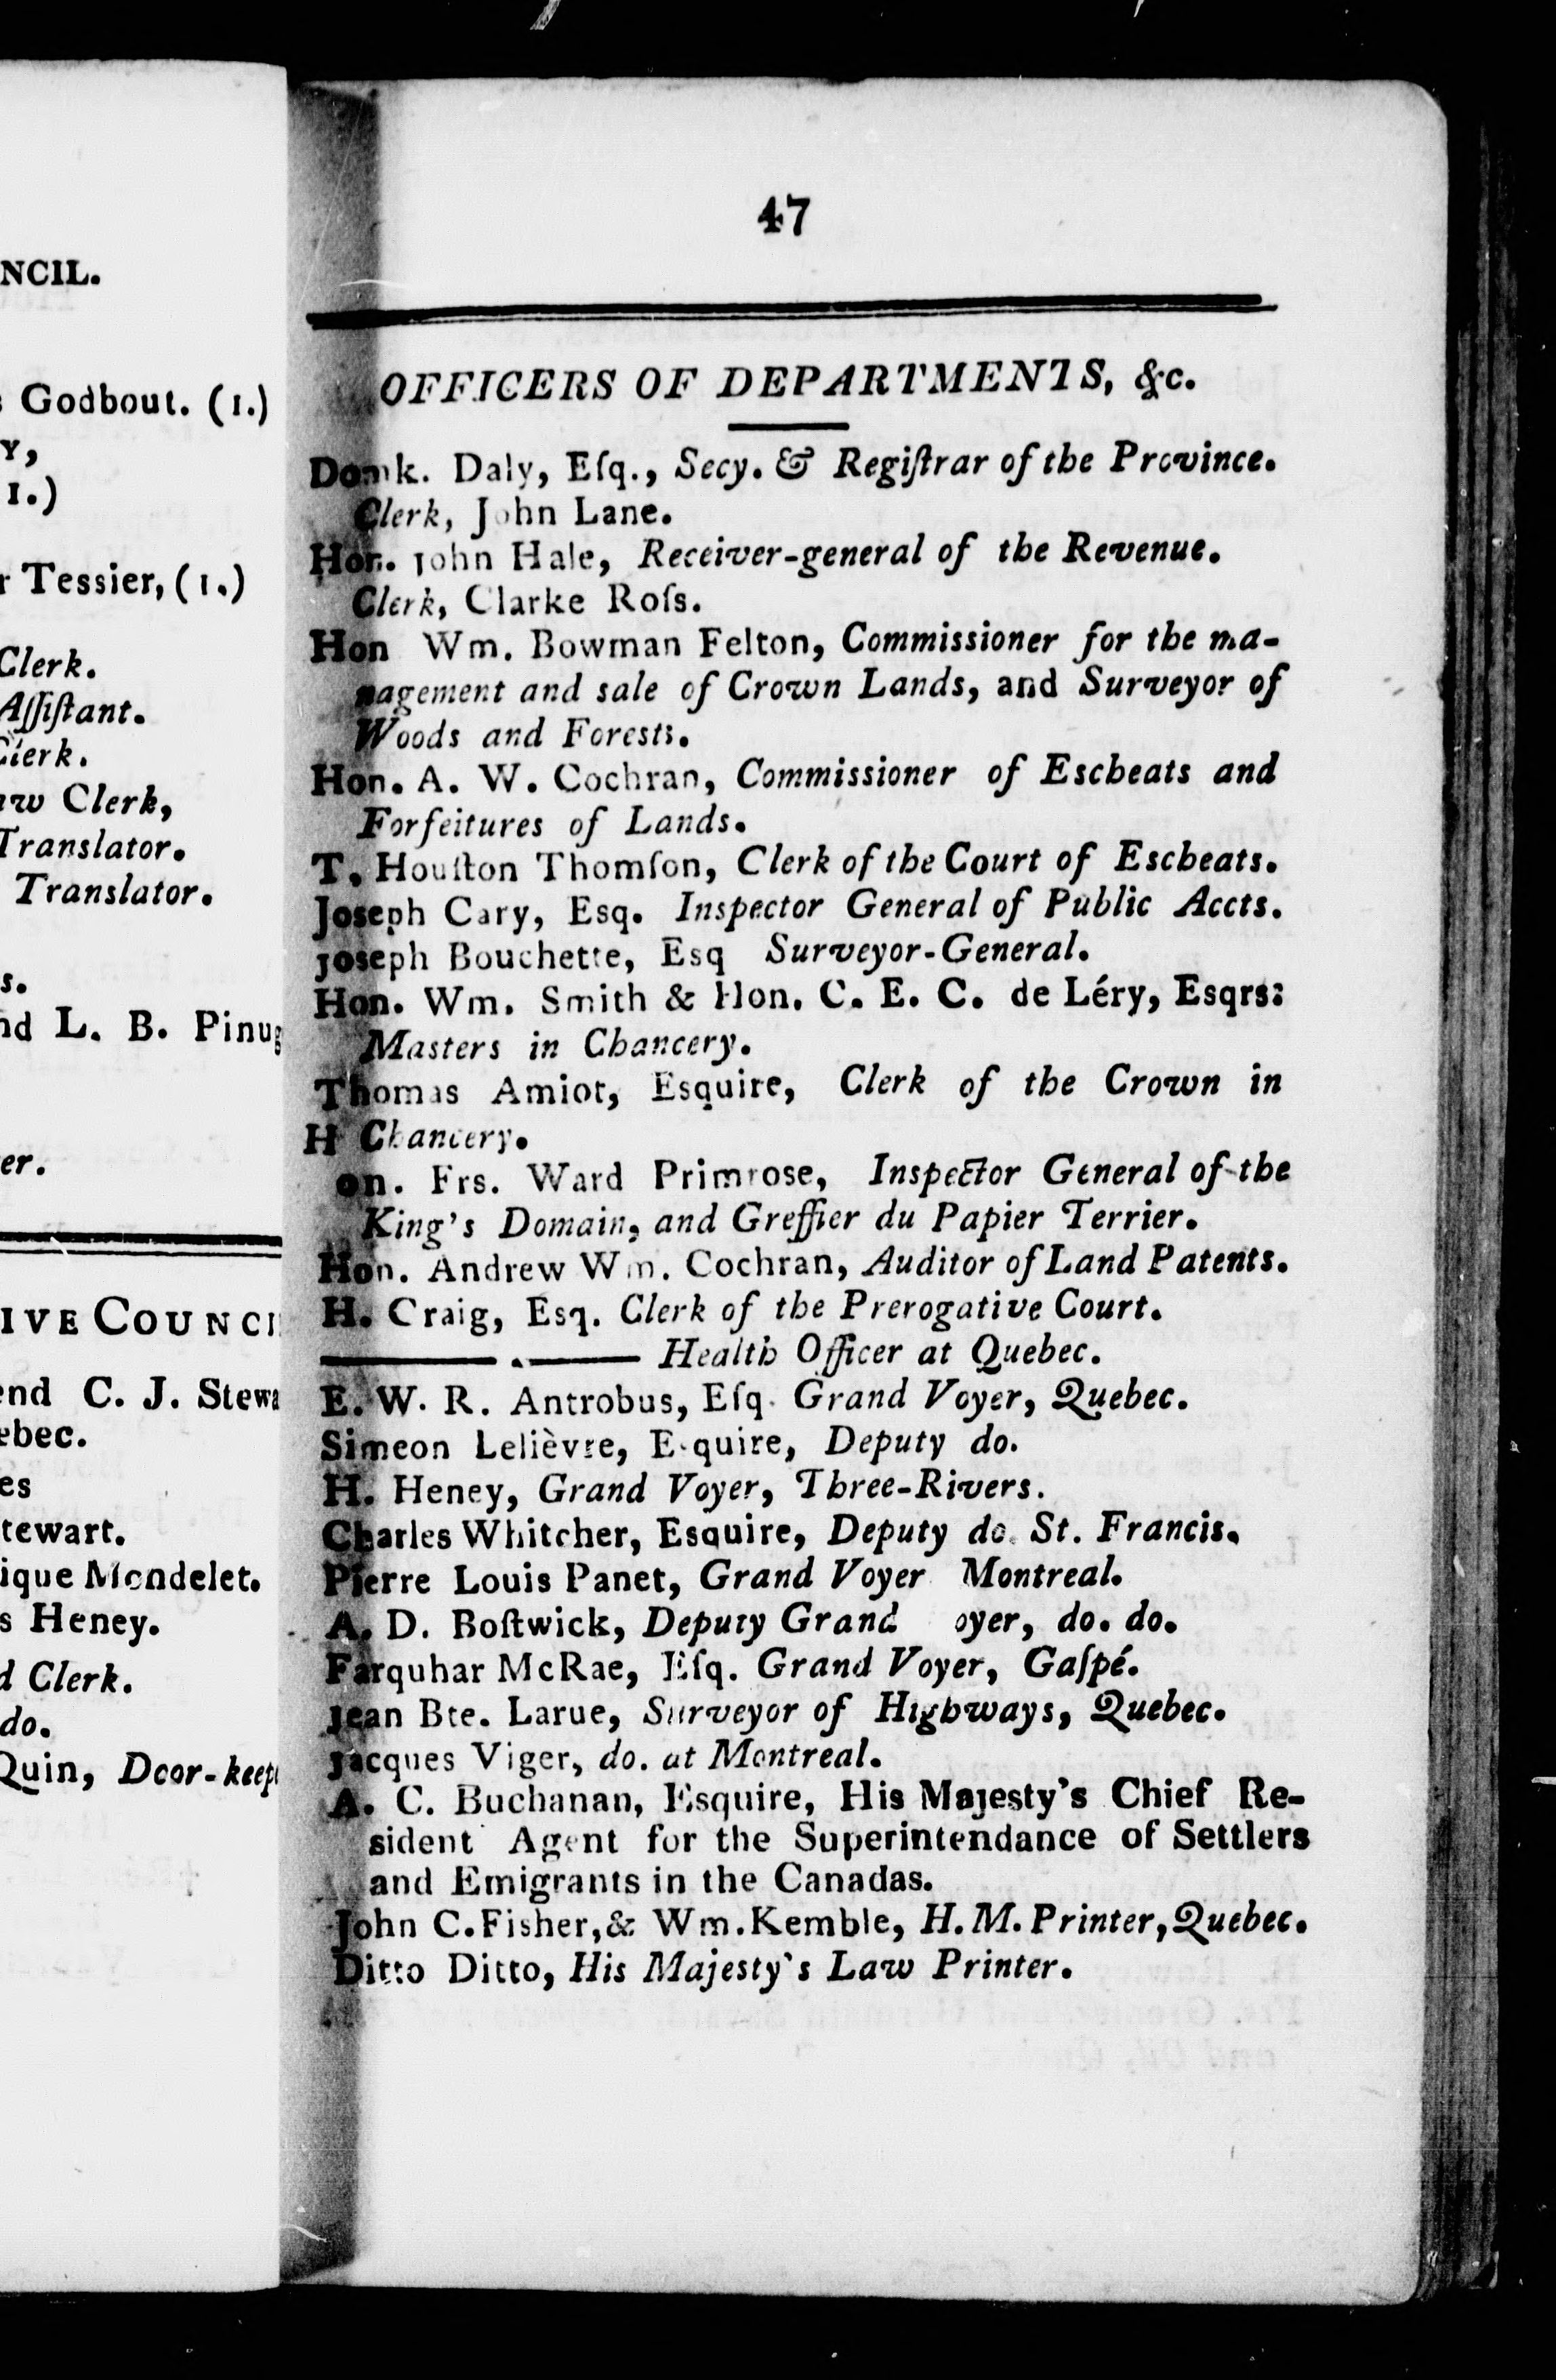 NCIL.
Godbout. (1.)
Y,
1.)
Tessier, (1.)
Clerk.
Aſſiſtant.
Clerk.
Clerk,
Translator.
Translator.
s.
L. B. Pinug
er.
IVE COUNCI
C. J. Stewa
ebec.
es
tewart.
ique Mondelet.
s Heney.
Clerk.
do.
Quin, Door-keep
47
OFFICERS OF DEPARTMENTS, &c.
Domk. Daly, Eſq., Secy. & Regiſtrar of the Province.
Clerk, John Lane.
Hon. John Hale, Receiver-general of the Revenue.
Clerk, Clarke Roſs.
Hon Wm. Bowman Felton, Commissioner for the ma-
nagement and sale of Crown Lands, and Surveyor of
Woods and Forests.
Hon. A. W. Cochran, Commissioner of Escheats and
Forfeitures of Lands.
T. Houſton Thomſon, Clerk of the Court of Escheats.
Joseph Cary, Esq. Inspector General of Public Accts.
Joseph Bouchette, Esq Surveyor-General.
Hon. Wm. Smith & Hon. C. E. C. de Léry, Esqrs:
Masters in Chancery.
Thomas Amiot, Esquire, Clerk of the Crown in
H Chancery.
on. Frs. Ward Primrose, Inspector General of the
King's Domain, and Greffier du Papier Terrier.
Hon. Andrew Wm. Cochran, Auditor of Land Patents.
H. Craig, Esq. Clerk of the Prerogative Court.
——— . ——— Health Officer at Quebec.
E. W. R. Antrobus, Eſq. Grand Voyer, Quebec.
Simeon Lelièvre, E quire, Deputy do.
H. Heney, Grand Voyer, Three-Rivers.
Charles Whitcher, Esquire, Deputy do. St. Francis.
Pierre Louis Panet, Grand Voyer Montreal.
A. D. Boſtwick, Deputy Grand oyer, do. do.
Farquhar McRae, Eſq. Grand Voyer, Gaſpé.
Jean Bte. Larue, Surveyor of Highways, Quebec.
Jacques Viger, do. at Montreal.
A. C. Buchanan, Esquire, His Majesty's Chief Re-
sident Agent for the Superintendance of Settlers
and Emigrants in the Canadas.
John C. Fisher, & Wm. Kemble, H. M. Printer, Quebec.
Ditto Ditto, His Majesty's Law Printer.